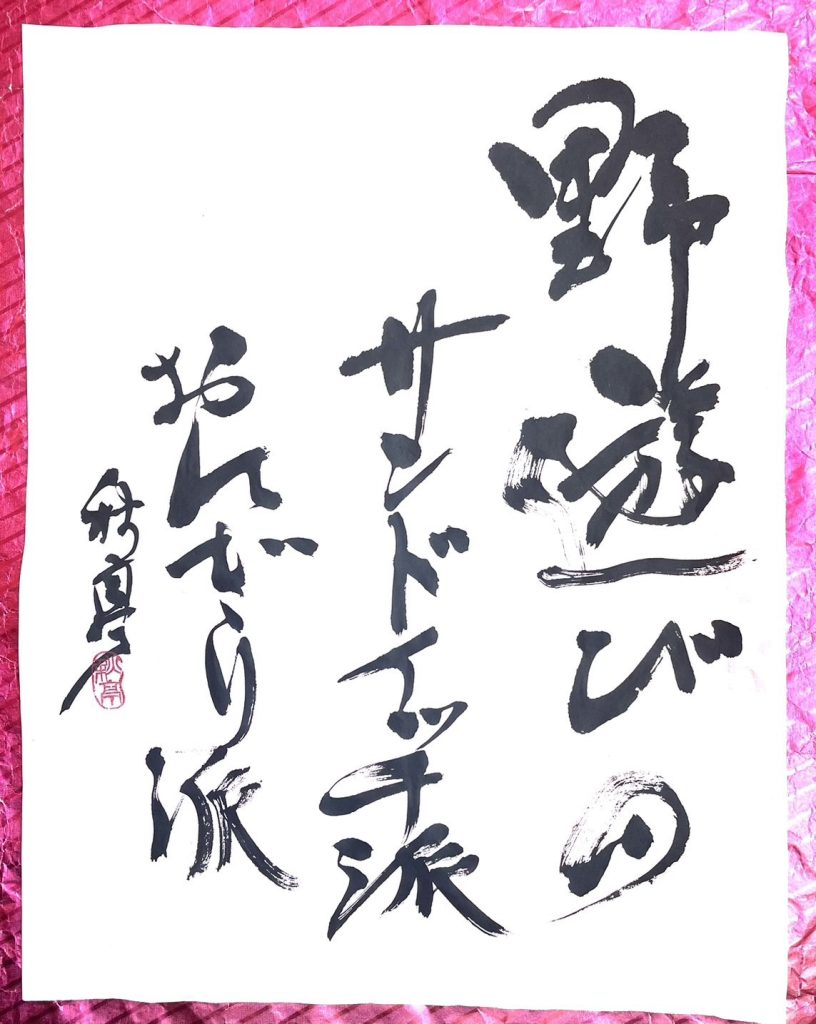 野遊びの
サンドイッチ派
おにぎり派
秋亭